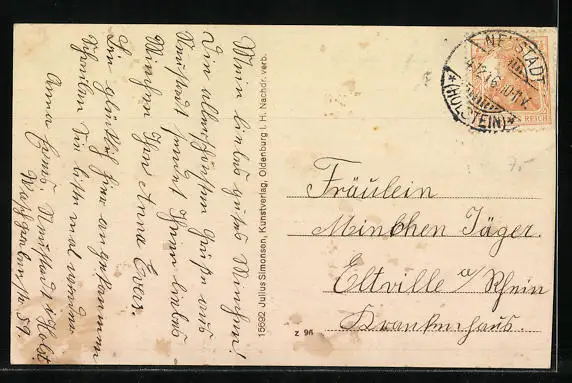 Mein liebes gutes Minchen!
Die allerschönsten Grüße aus
Neustadt sendet Ihnen liebes
Minchen Ihre Anna Evers.
Bin glücklich hier angekommen
Schreiben Sie bitte mal wieder
Anna Evers Neustadt i/Holst
15692 Julius Simonsen, Kunstverlag, Oldenburg i. H. Nachdr. verb.
z 96
NEUSTADT
4.12.16. 10-11V.
*(HOLSTEIN)*
REICH
7,-
Fräulein
Minchen Jäger.
Eltville a/Rhein
Krankenhaus.